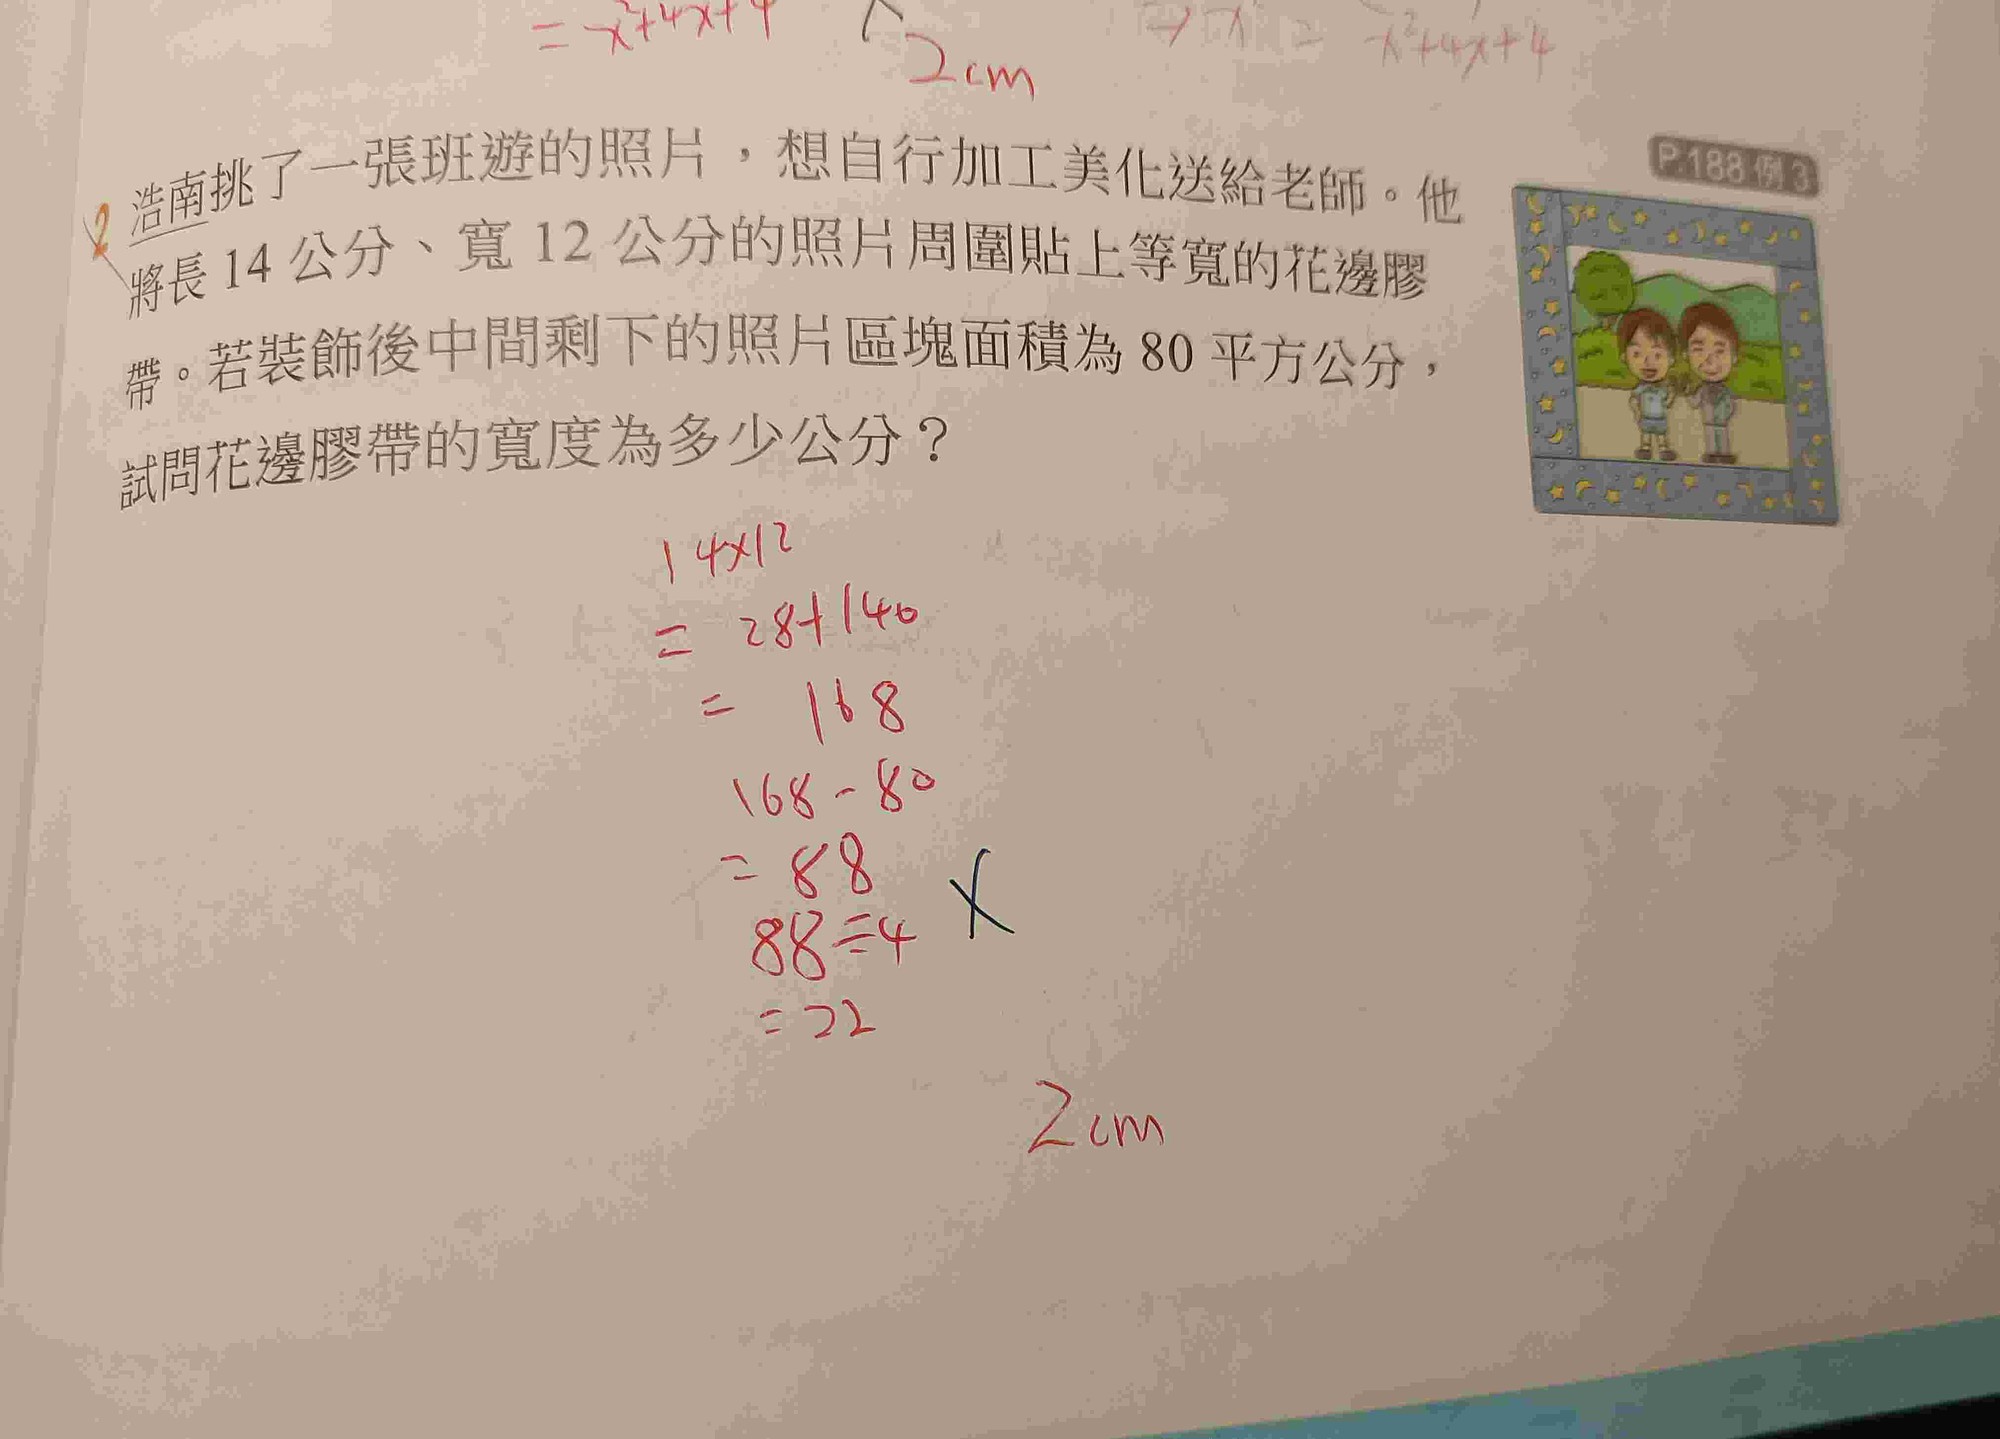 = x²+4x+4
2cm
⇒ x = x²+4x+4
P.188 例 3
2 浩南挑了一張班遊的照片，想自行加工美化送給老師。他
將長 14 公分、寬 12 公分的照片周圍貼上等寬的花邊膠
帶。若裝飾後中間剩下的照片區塊面積為 80 平方公分，
試問花邊膠帶的寬度為多少公分？
14×12
= 28+140
= 168
168-80
= 88
88÷4
= 22
2cm